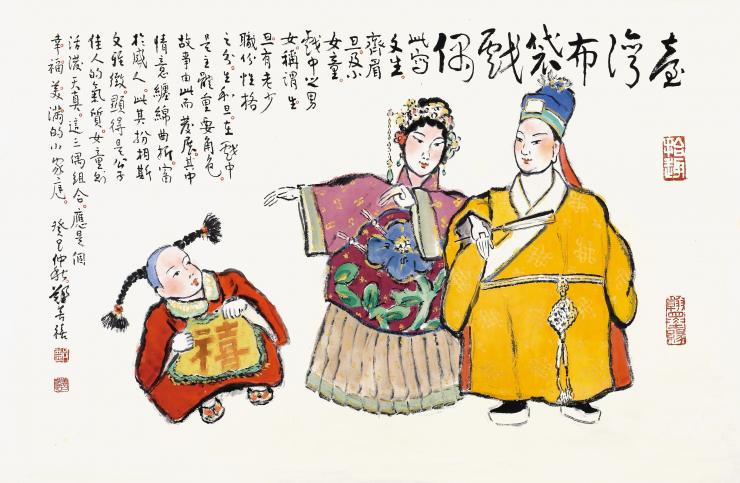 臺灣布袋戲偶
此寫
文生
齊眉
旦及小
女童。
戲中之男
女稱謂生
旦有老少
職份性格
之分。生和旦在戲中
是主體重要角色。
故事由此而發展其中
情意纏綿曲折富
於感人。此其扮相斯
文雅緻。顯得是公子
佳人的氣質。女童則
活潑天真。這三偶組合。應是個
幸福美滿的小家庭。
癸巳仲秋 鄭善禧
禧
拾趣